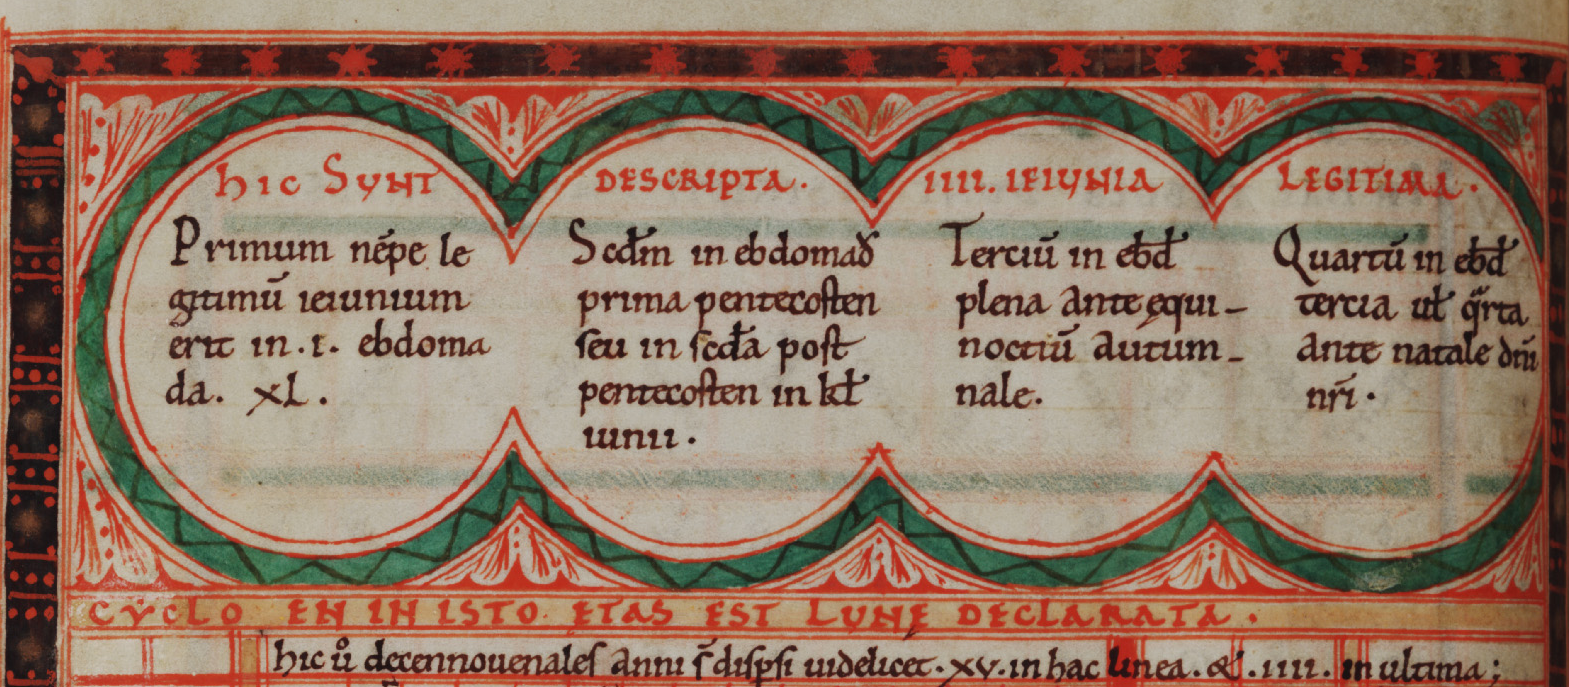 hIC SVNT DESCRIPTA. IIII. IEIVNIA LEGITIMA.
Primum nēpe le
gitimū ieiunium
erit in .i. ebdoma
da. XL.
Scd̄m in ebdomađ
prima pentecosten
seu in scd̄a post
pentecosten in kł
iunii.
Terciū in ebđ
plena ante ęqui-
noctiū autum-
nale.
Quartū in ebđ
tercia uł qͣrta
ante natale dn̄i
nr̄i.
CYCLO EN IN ISTO ETAS EST LUNĘ DECLARATA.
hic uͦ decennouenales anni s̄ disp̄si uidelicet. xv. in hac linea. &. iiii. in ultima;